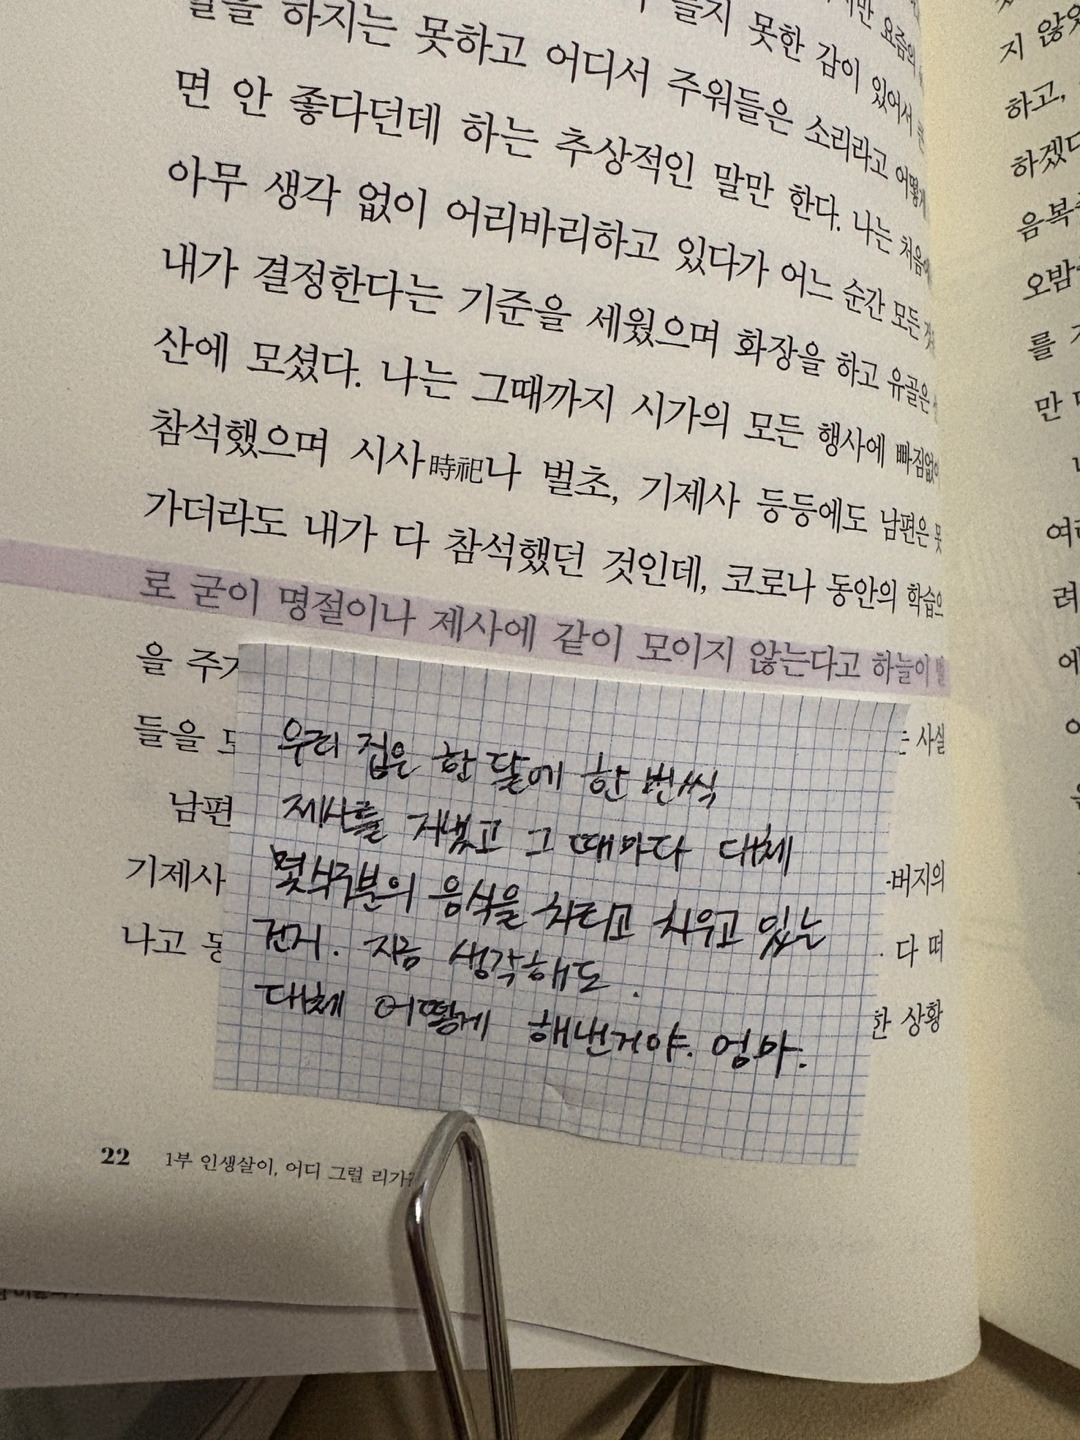 을 하지는 못하고 어디서 주워들은 소리라고 어떻게
지 못한 감이 있어서
요즘의
면 안 좋다던데 하는 추상적인 말만 한다. 나는 처음에
아무 생각 없이 어리바리하고 있다가 어느 순간 모든
내가 결정한다는 기준을 세웠으며 화장을 하고 유골은
산에 모셨다. 나는 그때까지 시가의 모든 행사에 빠짐없이
참석했으며 시사時祀나 벌초, 기제사 등등에도 남편은 못
가더라도 내가 다 참석했던 것인데, 코로나 동안의 학습으
로 굳이 명절이나 제사에 같이 모이지 않는다고 하늘이
을 주
들을
사실
남편
기제사
버지의
나고
다 떠
한 상황
우리 집은 한 달에 한 번씩
제사를 지냈고 그 때마다 대체
몇식구분의 음식을 차리고 치우고 있는
건지. 지금 생각해도.
대체 어떻게 해낸거야. 엄마.
22 1부 인생살이, 어디 그럴 리가?
지 않았
하고,
하겠다
음복
오밤
를
만
여
려
에